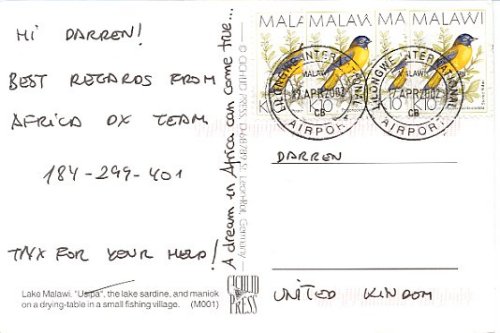 HI DARREN!
BEST REGARDS FROM
AFRICA DX TEAM
184-299-401
TNX FOR YOUR HELP!
Lake Malawi. "Usipa", the lake sardine, and maniok
on a drying-table in a small fishing village. (M001)
A dream in Africa can come true...
CICHLID PRESS
MALAWI
MALAWI
MALAWI
MALAWI
K10
10
K10
LILONGWE INTERNATIONAL
MALAWI
APR 2002
CB
AIRPORT
LILONGWE INTERNATIONAL
MALAWI
APR 2002
CB
AIRPORT
DARREN
UNITED KINGDOM